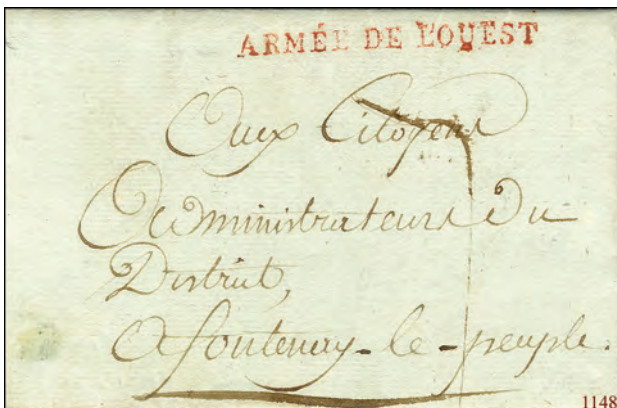 ARMÉE DE L'OUEST
Aux Citoyens
Administrateurs du
District,
A fontenay-le-peuple.
1148